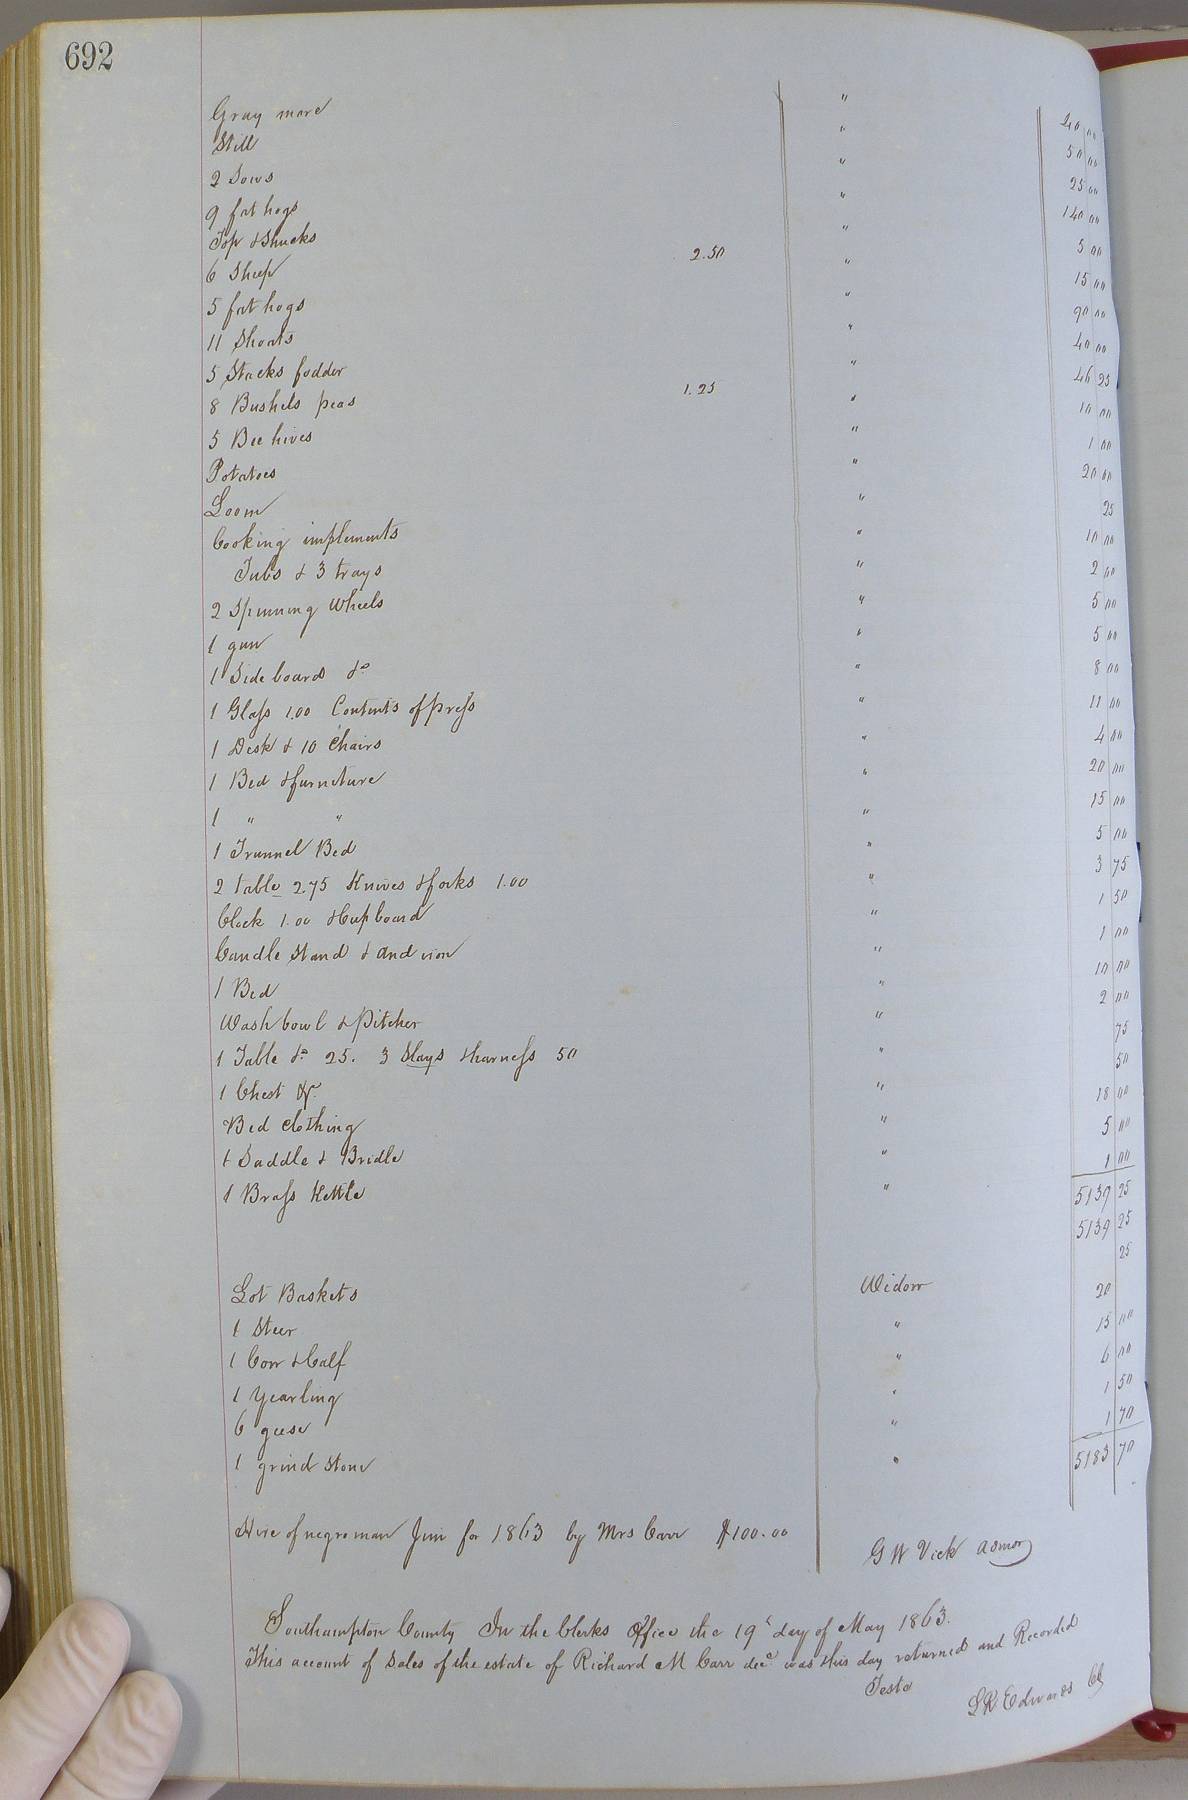 692
Gray mare " 40 00
Still " 50 00
2 Sows " 25 00
9 fat hogs " 140 00
Top & Shucks " 5 00
6 Sheep 2.50 " 15 00
5 fat hogs " 90 00
11 Shoats " 40 00
5 Stacks fodder " 46 25
8 Bushels peas 1.25 " 10 00
5 Bee hives " 1 00
Potatoes " 20 00
Loom " 25
Cooking implements " 10 00
Tubs & 3 trays " 2 00
2 Spinning Wheels " 5 00
1 gun " 5 00
1 Side board &c " 8 00
1 Glass 1.00 Contents of press " 11 00
1 Desk & 10 Chairs " 4 00
1 Bed & furniture " 20 00
1 " " " 15 00
1 Trunnel Bed " 5 00
2 table 2.75 Knives & forks 1.00 " 3 75
Clock 1.00 & Cupboard " 1 50
Candle stand & andiron " 1 00
1 Bed " 10 00
Wash bowl & Pitcher " 2 00
1 Table &c 25. 3 Slays & harness 50 " 75
1 Chest &c. " 50
Bed clothing " 18 00
1 Saddle & Bridle " 5 00
1 Brass Kettle " 1 00
5139 25
5139 25
Lot Baskets Widow 25
1 Steer " 20
1 Cow & Calf " 15 00
1 Yearling " 6 00
6 geese " 1 50
1 grind stone " 1 70
5183 70
Hire of negro man Jim for 1863 by Mrs Carr $100.00
G W Vick admor
Southampton County In the Clerks Office the 19 day of May 1863.
This account of Sales of the estate of Richard M Carr decd was this day returned and Recorded
Teste
L R Edwards Cl